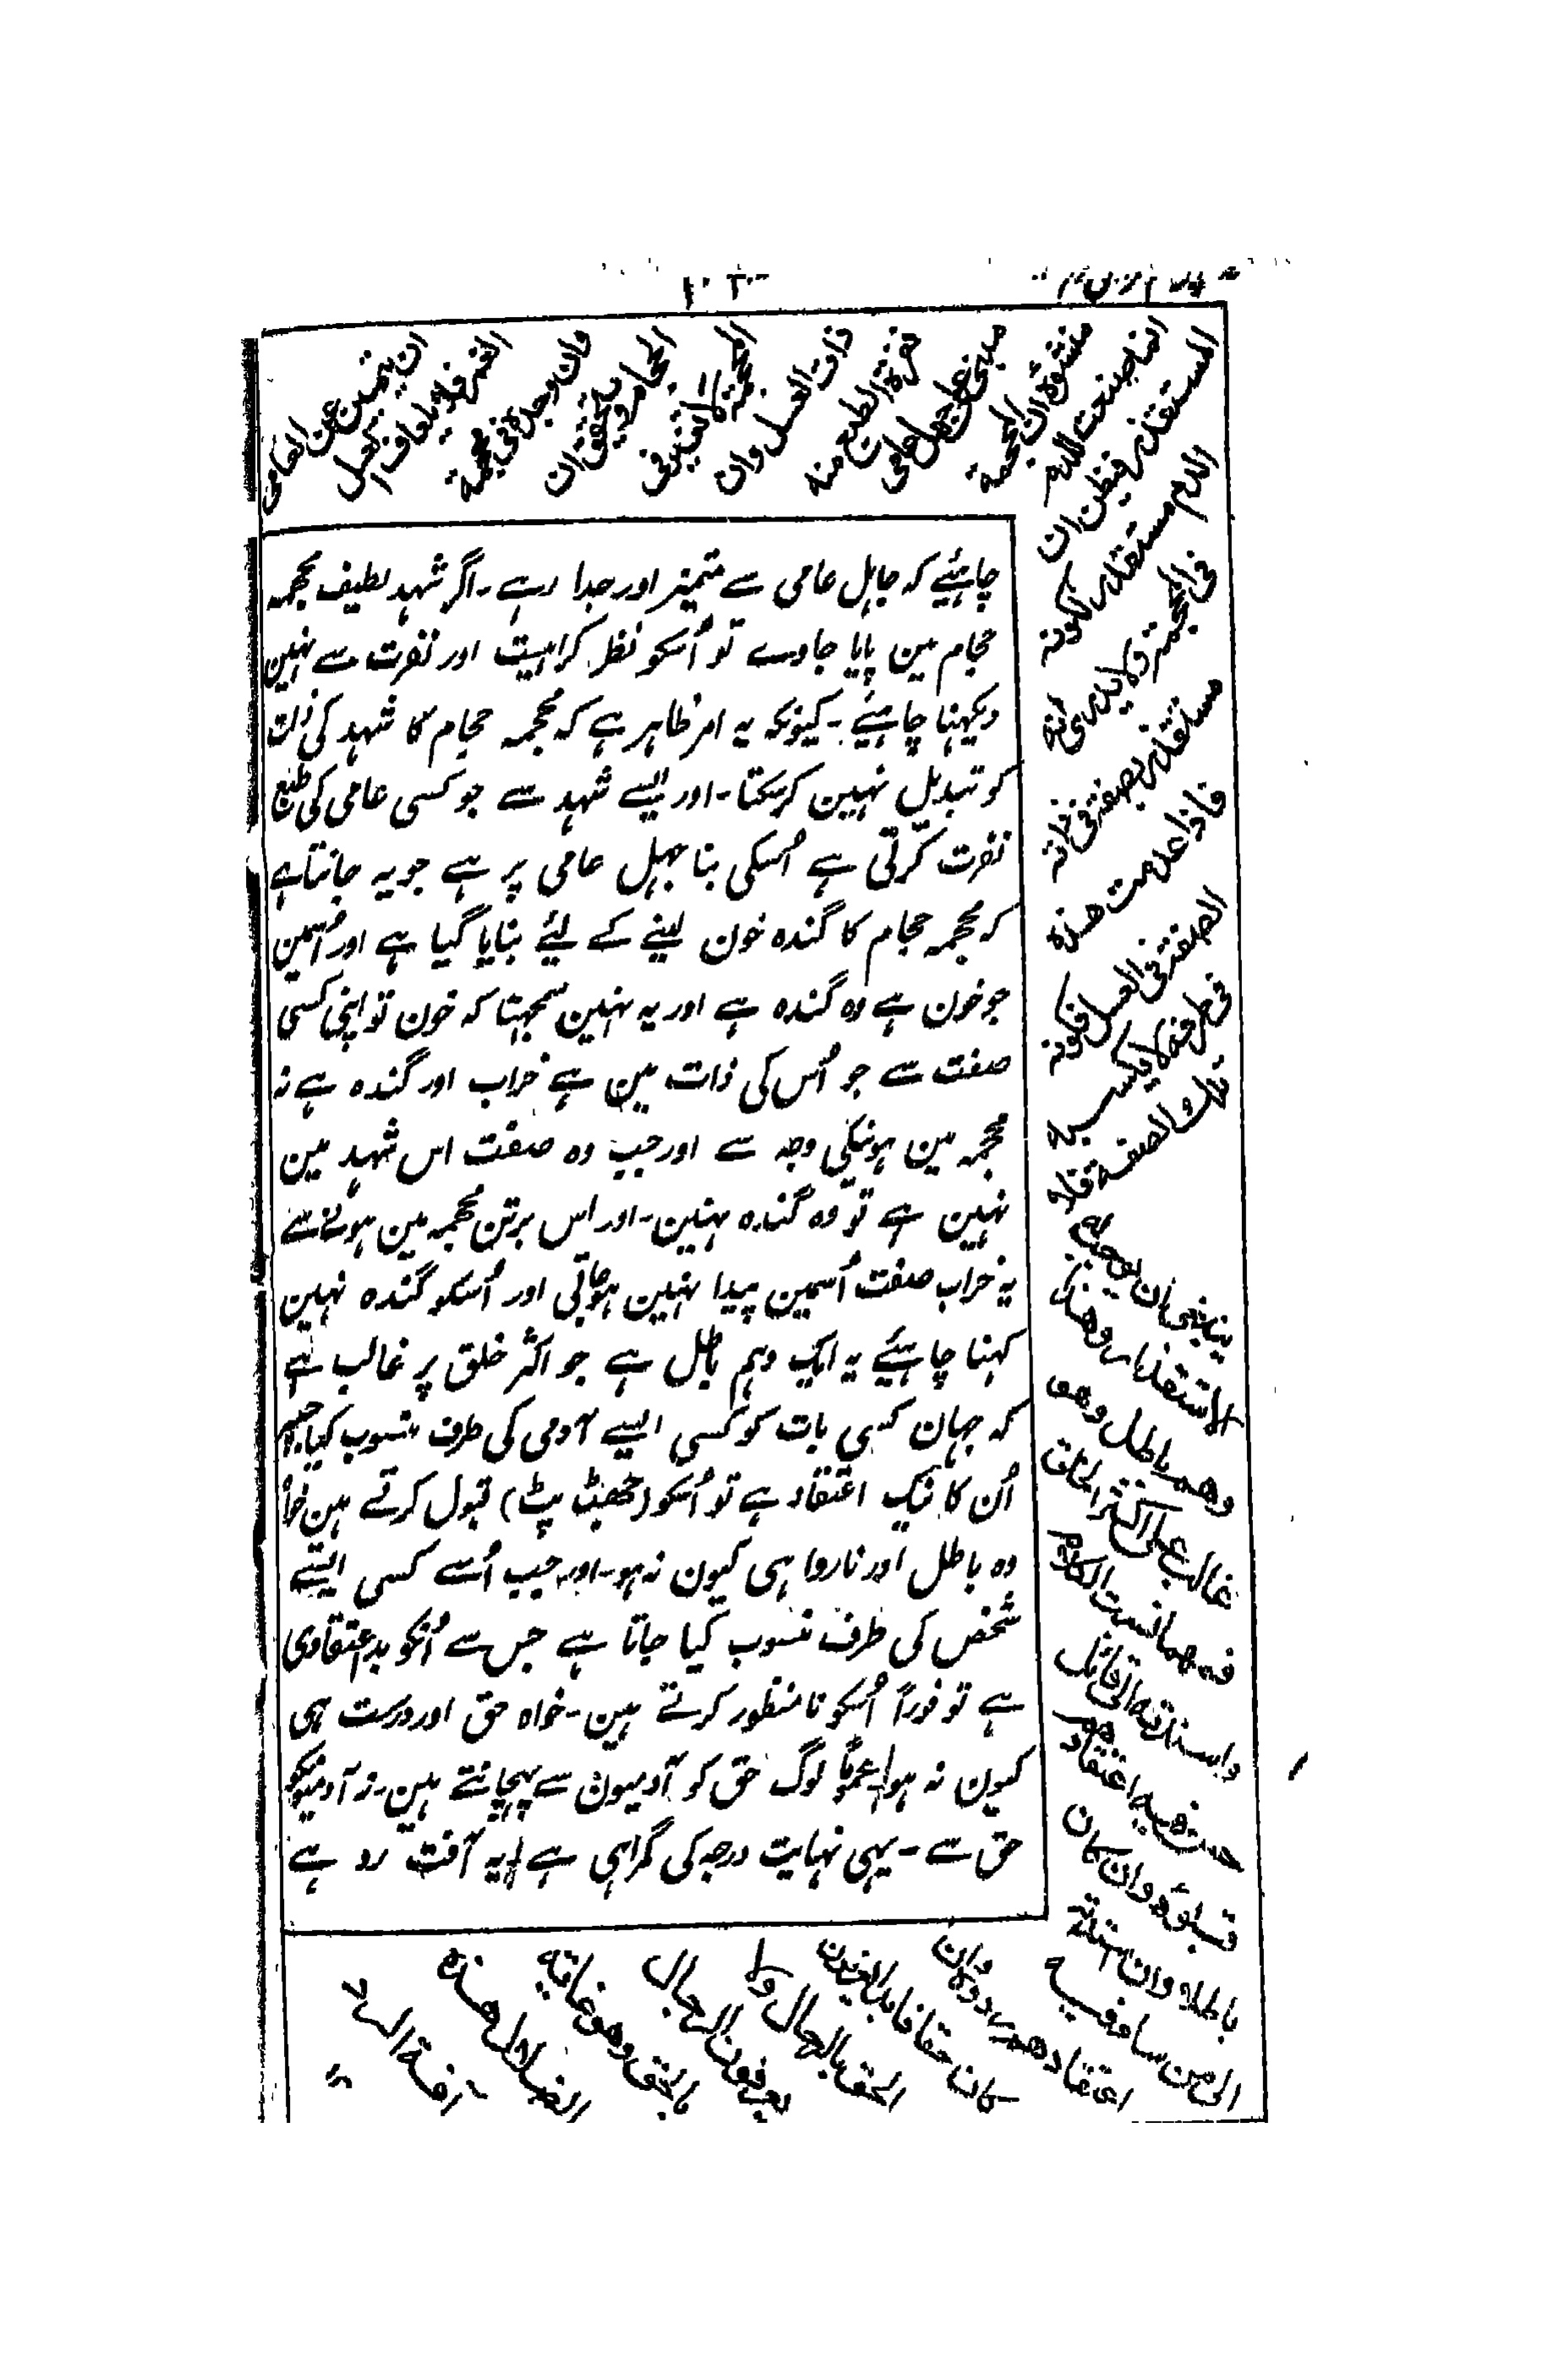 ان يتميز عن العامى
الغمر فلا يعاف العسل
وان وجده فى محجمة
الحجام ويتحقق ان
المحجمة لا تغير
ذات العسل وان
نفرة الطبع منه
مبنى على جهل عامى
منشؤه ان المحجمة
انما صنعت للدم
المستقذر فيظن ان
الدم مستقذر لكونه
فى المحجمة ولا يدرى انه
مستقذر بصفة فى ذاته
فاذا عدمت هذه
الصفة فى العسل فكونه
فى ظرفه لا يكسبه
تلك الصفة فلا
ينبغى ان يوجب له
الاستقذار وهذا
وهم باطل وهو
غالب على اكثر الخلق
فمهما نسبت الكلام
واسندته الى قائل
حسن فيه اعتقادهم
قبلوه وان كان
باطلا وان اسندته
الى من ساء فيه
اعتقادهم ردوه وان
كان حقا فابدا يعرفون
الحق بالرجال ولا
يعرفون الرجال
بالحق وهو غاية
الضلال هذه
آفة الرد
چاہئیے کہ جاہل عامی سے متمیز اور جدا رہے۔ اگر شہد لطیف محجمہ
حجام مین پایا جاوے تو اُسکو نظر کراہیت اور نفرت سے نہین
دیکہنا چاہئیے۔ کیونکہ یہ امر ظاہر ہے کہ محجمہ حجام کا شہد کی ذات
کو تبدیل نہین کرسکتا۔ اور ایسے شہد سے جو کسی عامی کی طبع
نفرت کرتی ہے اُسکی بنا جہل عامی پر ہے جو یہ جانتا ہے
کہ محجمہ حجام کا گندہ خون لینے کے لئے بنایا گیا ہے اور اُسمین
جو خون ہے وہ گندہ ہے اور یہ نہین سمجہتا کہ خون تو اپنی کسی
صفت سے جو اُس کی ذات مین ہے خراب اور گندہ ہے نہ
محجمہ مین ہونیکی وجہ سے اور جب وہ صفت اس شہد مین
نہین ہے تو وہ گندہ نہین۔ اور اس برتن محجمہ مین ہونے سے
یہ خراب صفت اُسمین پیدا نہین ہوجاتی اور اُسکو گندہ نہین
کہنا چاہئیے یہ ایک وہم باطل ہے جو اکثر خلق پر غالب ہے
کہ جہان کسی بات کو کسی ایسے آدمی کی طرف منسوب کیا جسپر
اُن کا نیک اعتقاد ہے تو اُسکو (جھٹ پٹ) قبول کرتے ہین خواہ
وہ باطل اور ناروا ہی کیون نہ ہو۔ اور جب اُسے کسی ایسے
شخص کی طرف منسوب کیا جاتا ہے جس سے اُنکو بد اعتقادی
ہے تو فوراً اُسکو نامنظور کرتے ہین۔ خواہ حق اور درست ہی
کیون نہ ہو۔ عموماً لوگ حق کو آدمیون سے پہچانتے ہین۔ نہ آدمیونکو
حق سے۔ یہی نہایت درجہ کی گمراہی ہے۔ یہ آفت رد ہے